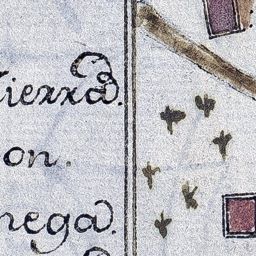 Tierra.
on.
nega.